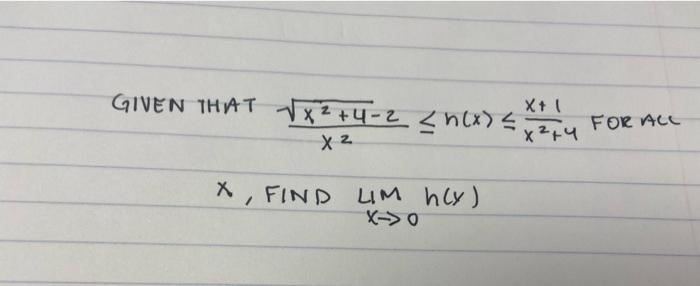 GIVEN THAT (√(x²+4)-2)/x² ≤ h(x) ≤ (x+1)/(x²+4) FOR ALL
x, FIND LIM h(x)
x→0